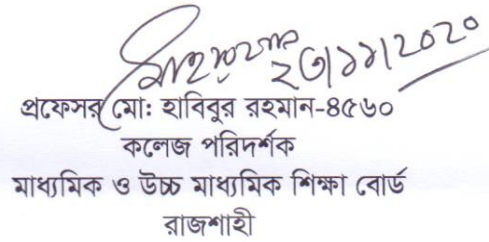 ২৩/১১/২০২০
প্রফেসর মো: হাবিবুর রহমান-৪৫৬০
কলেজ পরিদর্শক
মাধ্যমিক ও উচ্চ মাধ্যমিক শিক্ষা বোর্ড
রাজশাহী